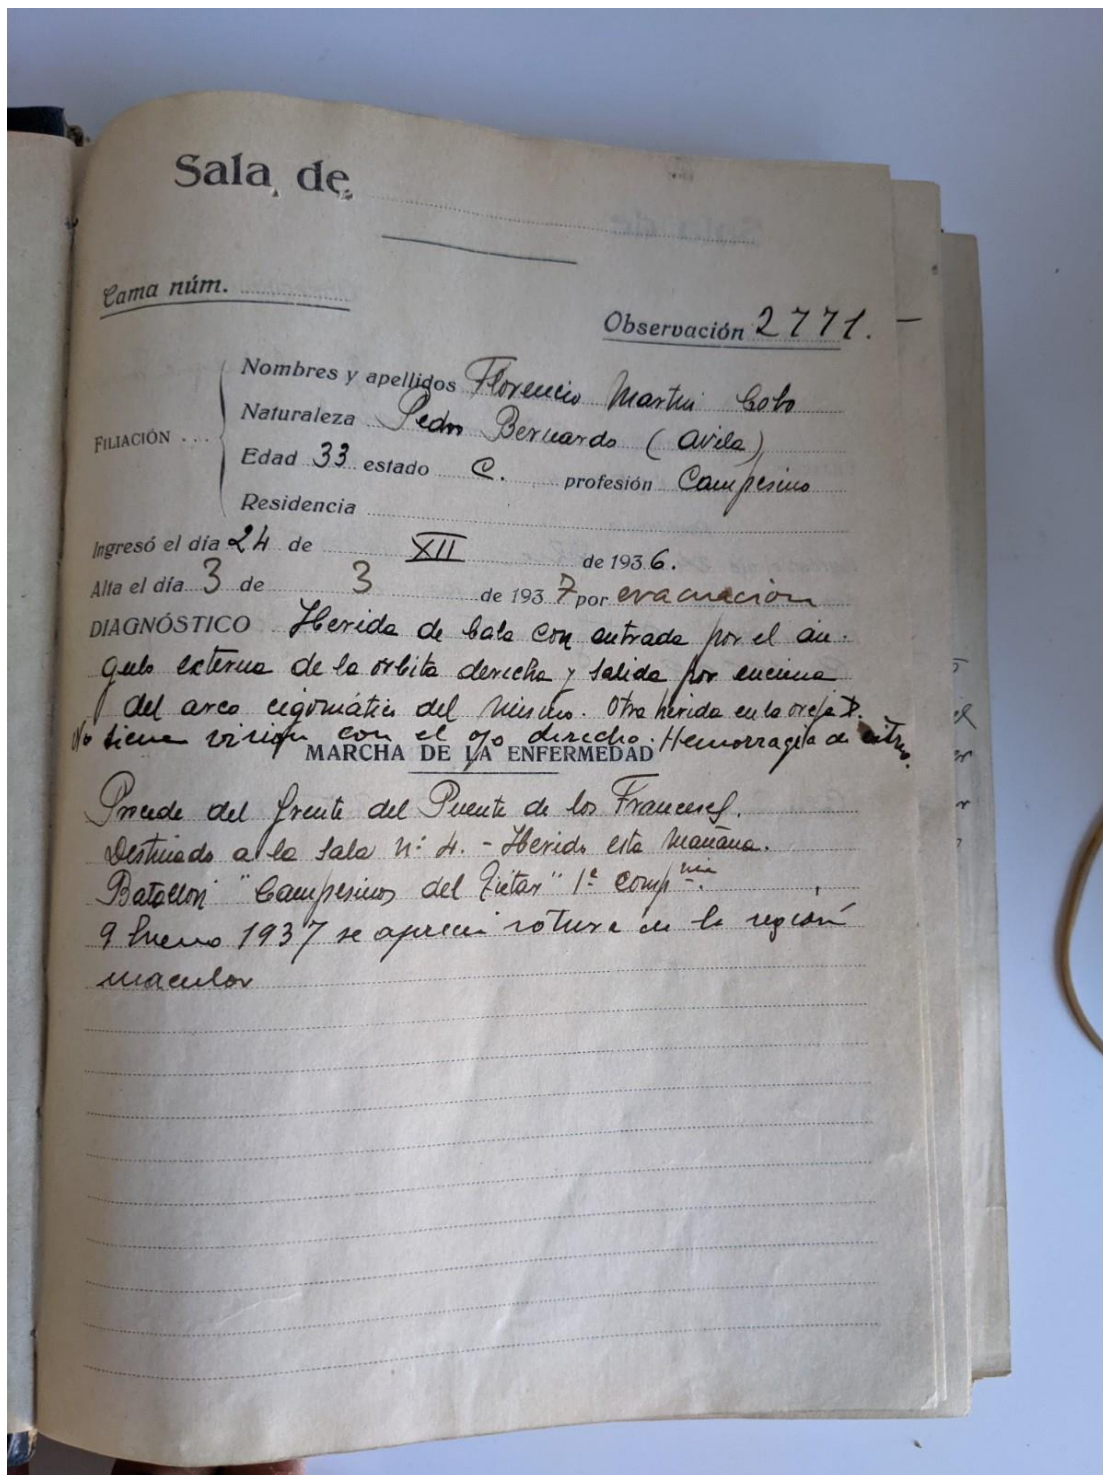 Sala de
Cama núm.
Observación 2771. —
Nombres y apellidos Florencio Martin Cobo
FILIACIÓN
Naturaleza Pedro Bernardo (Avila)
Edad 33 estado C. profesión Campesino
Residencia
Ingresó el día 24 de XII de 1936.
Alta el día 3 de 3 de 1937 por evacuación
DIAGNÓSTICO Herida de bala con entrada por el án-
gulo externo de la orbita derecha y salida por encima
del arco cigomático del mismo. Otra herida en la oreja D.
No tiene visión con el ojo derecho. Hemorragia de vitreo.
MARCHA DE LA ENFERMEDAD
Procede del frente del Puente de los Franceses.
Destinado a la sala nº 4. - Herido esta mañana.
Batallón "Campesinos del Tietar" 1ª compñia.
9 Enero 1937 se aprecia rotura en la región
macular